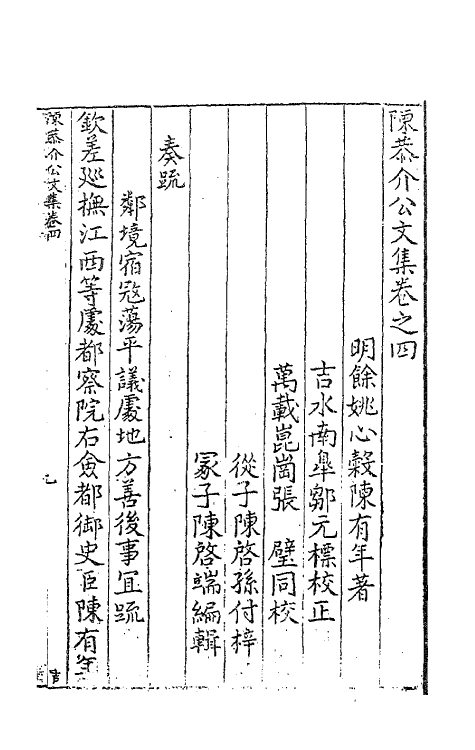 陳恭介公文集卷之四
明餘姚心穀陳有年著
吉水南臯鄒元標校正
萬載崑崗張　璧同校
從子陳啓孫付梓
冢子陳啓端編輯
奏疏
鄰境宿寇蕩平議處地方善後事宜疏
欽差廵撫江西等處都察院右僉都御史臣陳有年
陳恭介公文集卷四